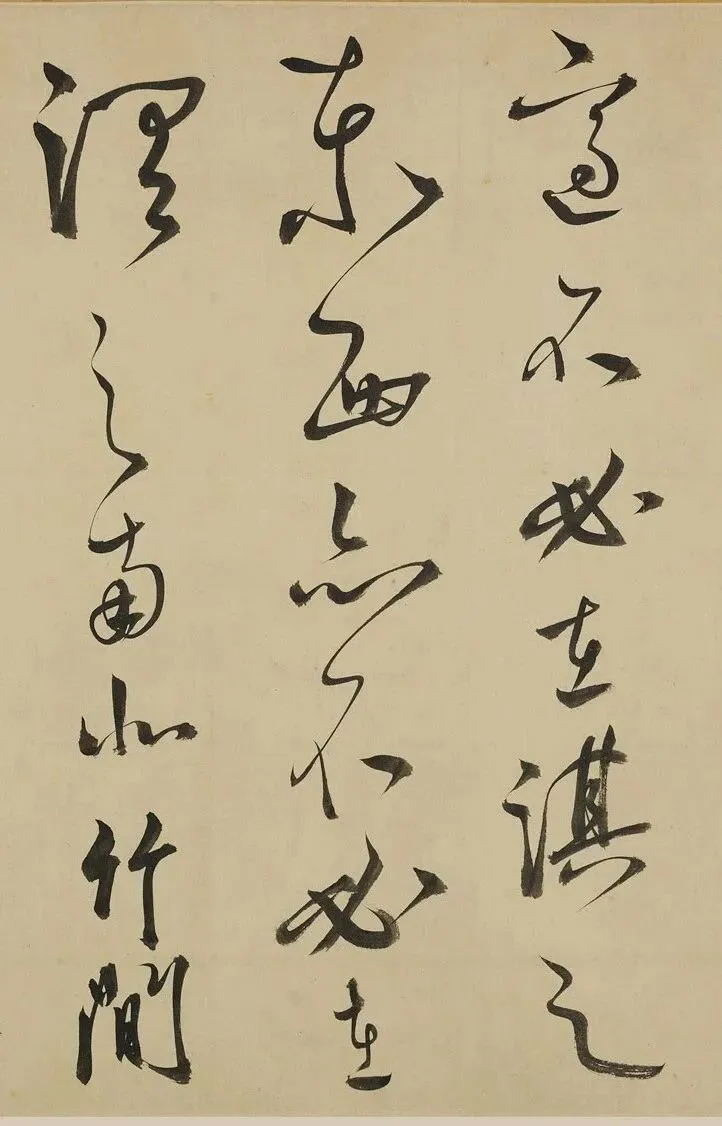 適不必在淇之
東西亦不必在
渭之南北竹間